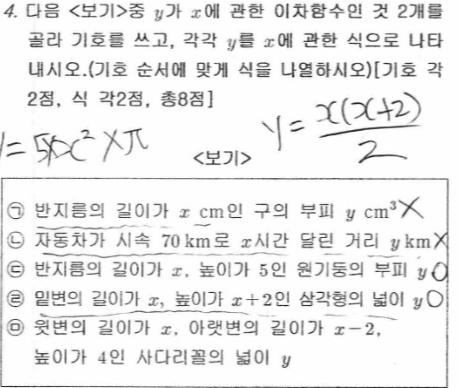 4. 다음 <보기>중 y가 x에 관한 이차함수인 것 2개를
골라 기호를 쓰고, 각각 y를 x에 관한 식으로 나타
내시오.(기호 순서에 맞게 식을 나열하시오)[기호 각
2점, 식 각2점, 총8점]
y = x(x+2)/2
=5x² × π
<보기>
㉠ 반지름의 길이가 x cm인 구의 부피 y cm³ X
㉡ 자동차가 시속 70 km로 x시간 달린 거리 y km X
㉢ 반지름의 길이가 x, 높이가 5인 원기둥의 부피 y O
㉣ 밑변의 길이가 x, 높이가 x+2인 삼각형의 넓이 y O
㉤ 윗변의 길이가 x, 아랫변의 길이가 x-2,
높이가 4인 사다리꼴의 넓이 y